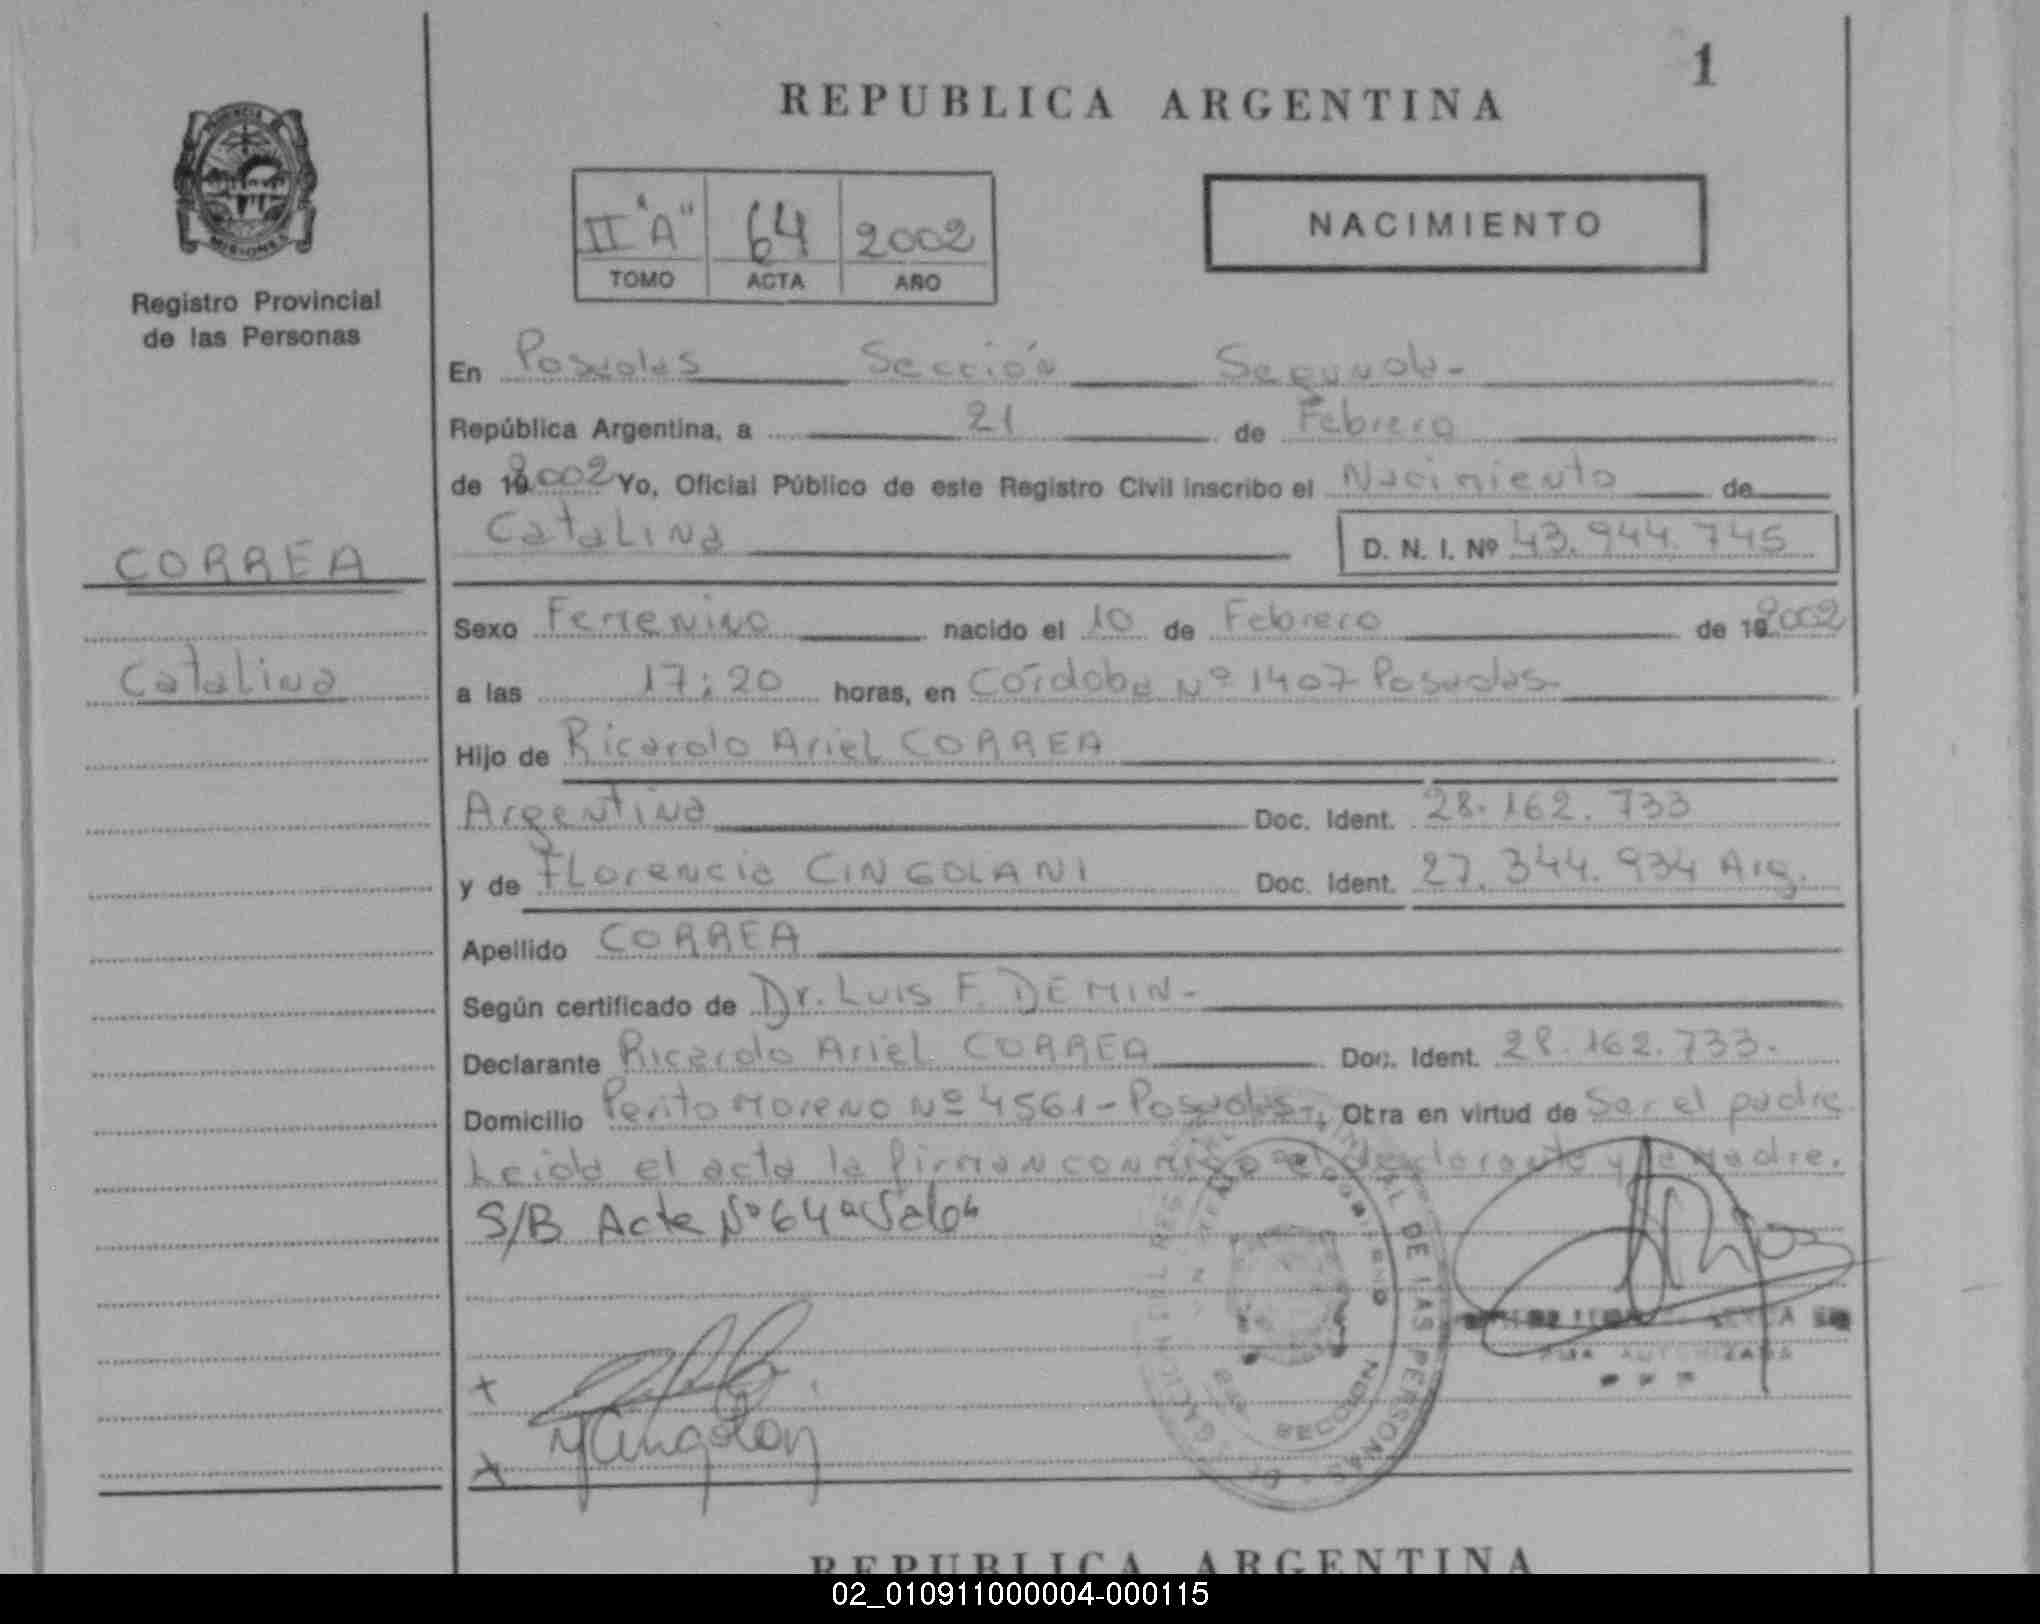 1
REPUBLICA ARGENTINA
II "A" 64 2002
TOMO ACTA AÑO
NACIMIENTO
PROVINCIA
MISIONES
Registro Provincial
de las Personas
En Posadas Sección Segunda-
República Argentina, a 21 de Febrero
de 19 2002 Yo, Oficial Público de este Registro Civil inscribo el Nacimiento de
Catalina D. N. I. Nº 43.944.745
CORREA
Catalina
Sexo Femenino nacido el 10 de Febrero de 19 2002
a las 17:20 horas, en Córdoba Nº 1407 Posadas-
Hijo de Ricardo Ariel CORREA
Argentina Doc. Ident. 28.162.733
y de Florencia CINGOLANI Doc. Ident. 27.344.934 Arg.
Apellido CORREA
Según certificado de Dr. Luis F. DEMIN-
Declarante Ricardo Ariel CORREA Doc. Ident. 28.162.733.
Domicilio Perito Moreno Nº 4561-Posadas-, Obra en virtud de Ser el padre.
Leída el acta la firman conmigo el declarante y la madre.
S/B Acta Nº 64 "Vale"
DE LAS PERSONAS
SECCION
AUTORIZADA
REPUBLICA ARGENTINA
02_010911000004-000115